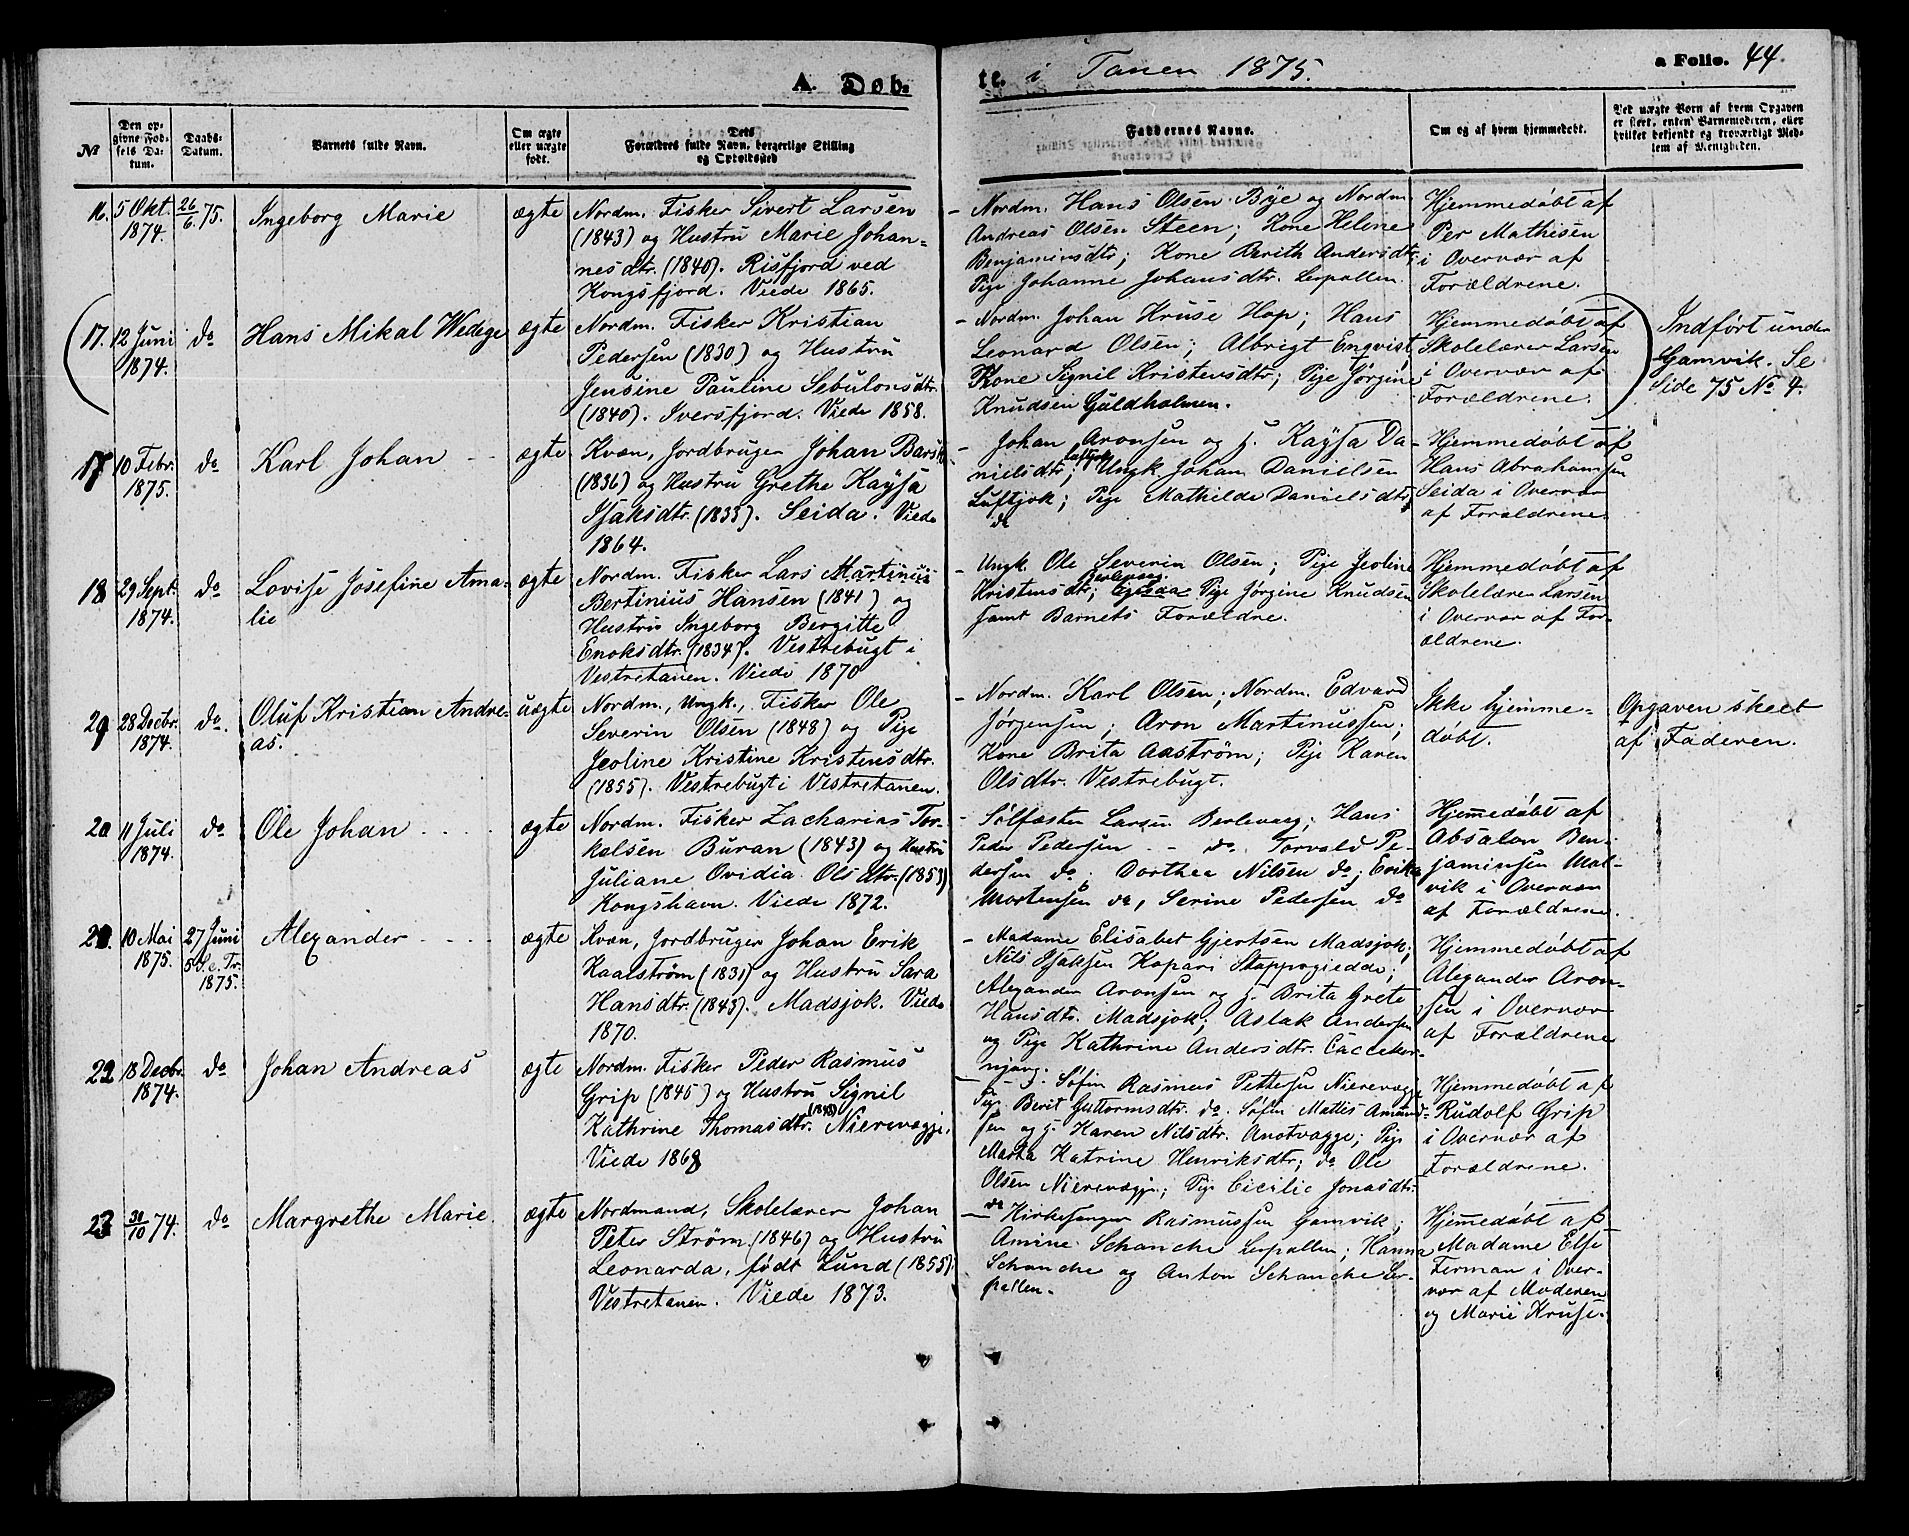 A. Døb-
te. i Tanen 1875.
a Folio. 44.
No
Den op-
givne Fød-
sels Da-
tum.
Daabs-
Datum.
Barnets fulde Navn.
Om ægte
eller uægte
født.
Dets
Forældres fulde Navn, borgerlige Stilling
og Opholdssted
Faddernes Navne.
Om og af hvem hjemmedøbt.
Ved uægte Børn af hvem Opgaven
er skeet, enten Barnemoderen, eller
hvilket bekjendt og troværdigt Med-
lem af Menigheden.
16.
5 Okt.
1874.
26/6 75.
Ingeborg Marie
ægte
Nordm. Fisker Sivert Larsen
(1843) og Hustru Marie Johan-
nesdtr. (1840). Risfjord ved
Kongsfjord. Viede 1865.
- Nordm. Hans Olsen Bye og Nordm.
Andreas Olsen Steen; Kone Helene
Benjaminsdtr; Kone Berith Andersdtr;
Pige Johanne Johansdtr. Lerpollen.
Hjemmedøbt af
Per Mathisen
i Overvær af
Forældrene.
17.
12 Juni
1874.
do
Hans Mikal Wedege
ægte
Nordm. Fisker Kristian
Pedersen (1830) og Hustru
Jensine Pauline Sebulonsdtr.
(1840). Iversfjord. Viede 1858.
- Nordm. Johan Kruse Hop; Hans
Leonard Olsen; Albrigt Enqvist,
Kone Signil Kristensdtr; Pige Jørgine
Knudsen Guldholmen.
Hjemmedøbt af
Skolelærer Larsen
i Overvær af
Forældrene.
Indført under
Gamvik. Se
Side 75 No. 4.
17
10 Febr.
1875.
do
Karl Johan
ægte
Kvæn, Jordbruger Johan Barsk
(1836) og Hustru Grethe Kaysa
Isaksdtr. (1835). Seida. Viede
1864.
- Johan Aronsen og H. Kaysa Da-
nielsdtr; Luftjok Ungk Johan Danielsen
Luftjok; Pige Mathilde Danielsdtr
do
Hjemmedøbt af
Hans Abrahamsen
Seida i Overvær
af Forældrene.
18
29 Sept.
1874.
do
Lovise Josefine Ama-
lie
ægte
Nordm. Fisker Lars Martinius
Bertinius Hansen (1841) og
Hustru Ingeborg Bergitte
Enoksdtr. (1834). Vestrebugt i
Vestretanen. Viede 1870
- Ungk. Ole Severin Olsen; Pige Jeoline
Kristensdtr; Pige Jørgine Knudsen
samt Barnets Forældre.
Hjemmedøbt af
Skolelærer Larsen
i Overvær af For-
ældrene.
28 Decbr.
1874.
do.
Oluf Kristian Andre-
as.
uægte
Nordm., Ungk., Fisker Ole
Severin Olsen (1848) og Pige
Jeoline Kristine Kristensdtr.
(1855). Vestrebugt i Vestretanen.
- Nordm. Karl Olsen; Nordm. Edvard
Jørgensen; Aron Martinussen;
Kone Brita Aaström; Pige Karen
Olsdtr. Vestrebugt.
Ikke hjemme-
døbt.
Opgaven skeet
af Faderen.
20
11 Juli
1874.
do
Ole Johan
ægte
Nordm. Fisker Zacharias Tor-
kelsen Buran (1843) og Hustru
Juliane Ovidia Olsdtr. (1853)
Kongshavn. Viede 1872.
- Sølfæster Larsen Berlevaag; Hans
Peder Pedersen - do Torvald Pe-
dersen do; Dorthea Nilsen do; Erika
Mortensen do, Serine Pedersen do
Hjemmedøbt af
Absalon Ben-
jaminsen Mol-
vik i Overvær
af Forældrene.
10 Mai
1875.
27 Juni
5 S. e. Tr.
1875.
Alexander
ægte
Kvæn, Jordbruger Johan Erik
Kaalström (1831) og Hustru Sara
Hansdtr. (1843). Madsjok. Viede
1870.
- Madame Elisabet Gjertsen Madsjok;
Nils Isaksen Kopari Stappogiedde;
Alexander Aronsen og H. Brita Grete
Hansdtr. Madsjok; Aslak Andersen
og Pige Kathrine Andersdtr.
Hjemmedøbt af
Alexander Aron-
sen i Overvær
af Forældrene
22
18 Decbr.
1874.
do
Johan Andreas
ægte
Nordm. Fisker Peder Rasmus
Grip (1845) og Hustru Signil
Kathrine Thomasdtr. (1843) Nierevaggi.
Viede 1868
Søfin Rasmus Pettersen Nierevagge
Pige Berit Guttormsdtr. do. Søfin Mattis Amund-
sen og H. Karen Nilsdtr. Anotvagge; Pige
Marta Katrine Henriksdtr; do Ole
Olsen Nierevagge; Pige Cicilie Jonasdtr.
do
Hjemmedøbt af
Rudolf Grip
i Overvær af
Forældrene.
23
30/10 74.
do
Margrethe Marie
ægte
Nordmand, Skolelærer Johan
Peter Strøm (1846) og Hustru
Leonarda, født Lund (1855).
Vestretanen. Viede 1873.
- Kirkesanger Rasmussen Gamvik;
Amine Schanche Lerpollen; Hanna
Schanche og Anton Schanche Ler-
pollen.
Hjemmedøbt af
Madame Else
Ferman i Over-
vær af Moderen
og Marie Kruse.